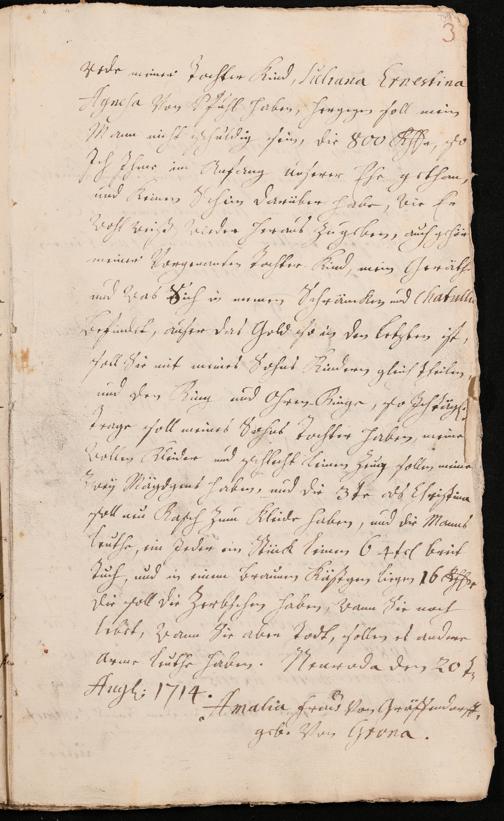 3
meiner Tochter Kind, Juliana Ernestina
Agnesa von Pfuhl haben, hergegen soll mein
Mann nicht schuldig sein, die 800 , so
Ich Ihme im Anfang unserer Ehe gethan,
und keinen Schein darüber habe, wie Er
wohl weiß, wieder heraus zugeben, auch gehör
meiner Vorgenanten Tochter Kind, mein Geräth
und was Sich in meinen Schräncken und Chatulle
befindet, außer das Gold so in den letzten ist,
soll Sie mit meines Sohns Kindern gleich theilen,
und den Ring und Ohren Ringe, so Ich
trage soll meines Sohns Tochter haben, meine
wollen Kleider und schlecht leinen Zeug sollen meine
zwey Mägdgens haben, und die 3te als Christina
soll neu Rasch zum Kleide haben, und die Manns
leuthe, ein jeder ein Stück leinen 6 breit
Tuch, und in einem braunen Kästgen liegen 16
die soll die haben, wann Sie noch
lebet, wann Sie aber Todt, sollen es andere
arme leuthe haben. Neuroda den 20
Augt: 1714.
Amalia Frau von Gräffendorff,
geb. von Grona.